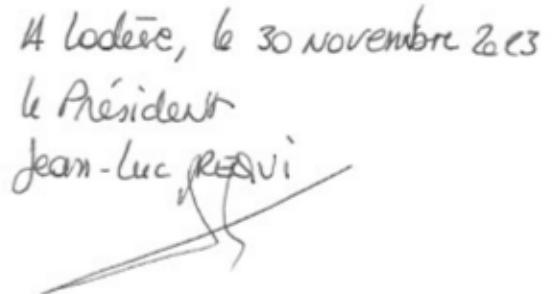 A Lodève, le 30 novembre 2023
le Président
Jean-Luc REQUI